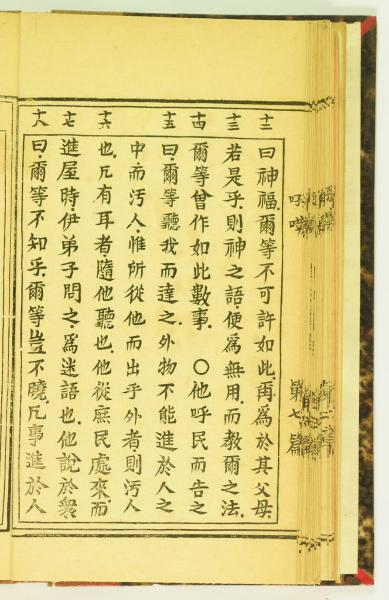 十二 曰神福爾等不可許如此再爲於其父母
十三 若是乎則神之語便爲無用而教爾之法
十四 爾等曾作如此數事〇他呼民而告之
十五 曰爾等聽我而達之外物不能進於人之
中而污人惟所從他而出乎外者則污人
十六 也凡有耳者隨他聽也他從庶民處來而
十七 進屋時伊弟子問之爲迷語也他說於衆
十八 曰爾等不知乎爾等豈不曉凡事進於人
第七篇